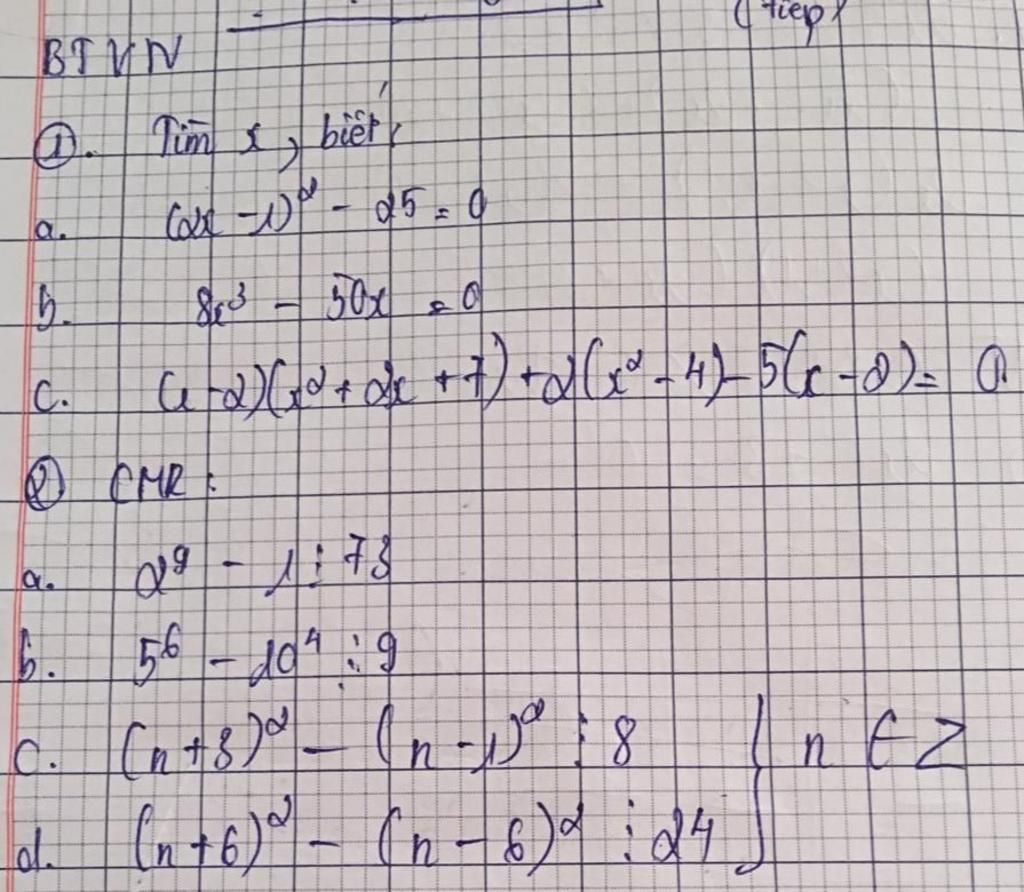 (tiếp)
BTVN
①. Tìm x, biết:
a. (2x - 1)² - 25 = 0
b. 8x³ - 50x = 0
c. (x - 2)(x² + 2x + 7) + 2(x² - 4) - 5(x - 2) = 0
② CMR:
a. 2⁹ - 1 ⋮ 73
b. 5⁶ - 10⁴ ⋮ 9
c. (n + 3)² - (n - 1)² ⋮ 8 } n ∈ Z
d. (n + 6)² - (n - 6)² ⋮ 24